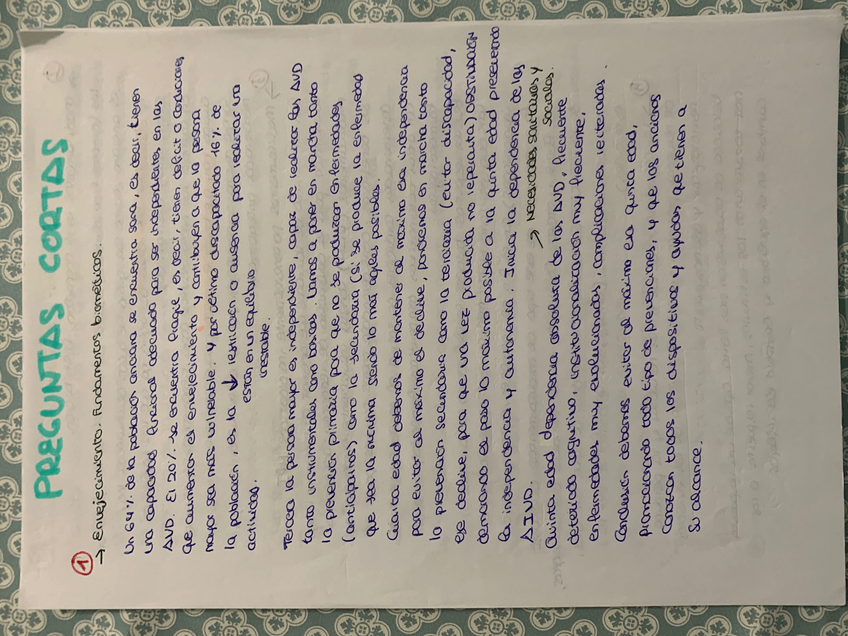 PREGUNTAS CORTAS
1
→ Envejecimiento. Fundamentos biomédicos.
Un 64% de la población anciana se encuentra sana, es decir, tienen
una capacidad funcional adecuada para ser independientes en las
AVD. El 20% se encuentra frágil, es decir, tienen déficit o condiciones
que aumentan el envejecimiento y contribuyen a que la persona
mayor sea más vulnerable. Y por último discapacitado 16% de
la población, es la ↓ restricción o ausencia para realizar una
actividad.
están en un equilibrio
inestable.
Tercera la persona mayor es independiente, capaz de realizar las AVD
tanto instrumentales como básicas. Vamos a poner en marcha tanto
la prevención primaria para que no se produzcan enfermedades
(anticiparnos) como la secundaria (si se produce la enfermedad
que sea la mínima siendo lo más ágiles posibles.
Cuarta edad debemos de mantener al máximo esa independencia
para evitar al máximo el declive, pondremos en marcha tanto
la prevención secundaria como la terciaria (evitar discapacidad,
ese declive, para que una vez producida no repercuta) obstrucción
demorando el paso lo máximo posible a la quinta edad preservando
la independencia y autonomía. Inicia la dependencia de las
AIVD.
→ Necesidades sanitarias y
sociales.
Quinta edad dependencia absoluta de las AVD, frecuente
deterioro cognitivo, institucionalización muy frecuente,
enfermedades muy evolucionadas, complicaciones reiteradas.
Conclusión debemos evitar al máximo esa quinta edad,
promocionando todo tipo de prevenciones, y que los ancianos
conozcan todos los dispositivos y ayudas que tienen a
su alcance.